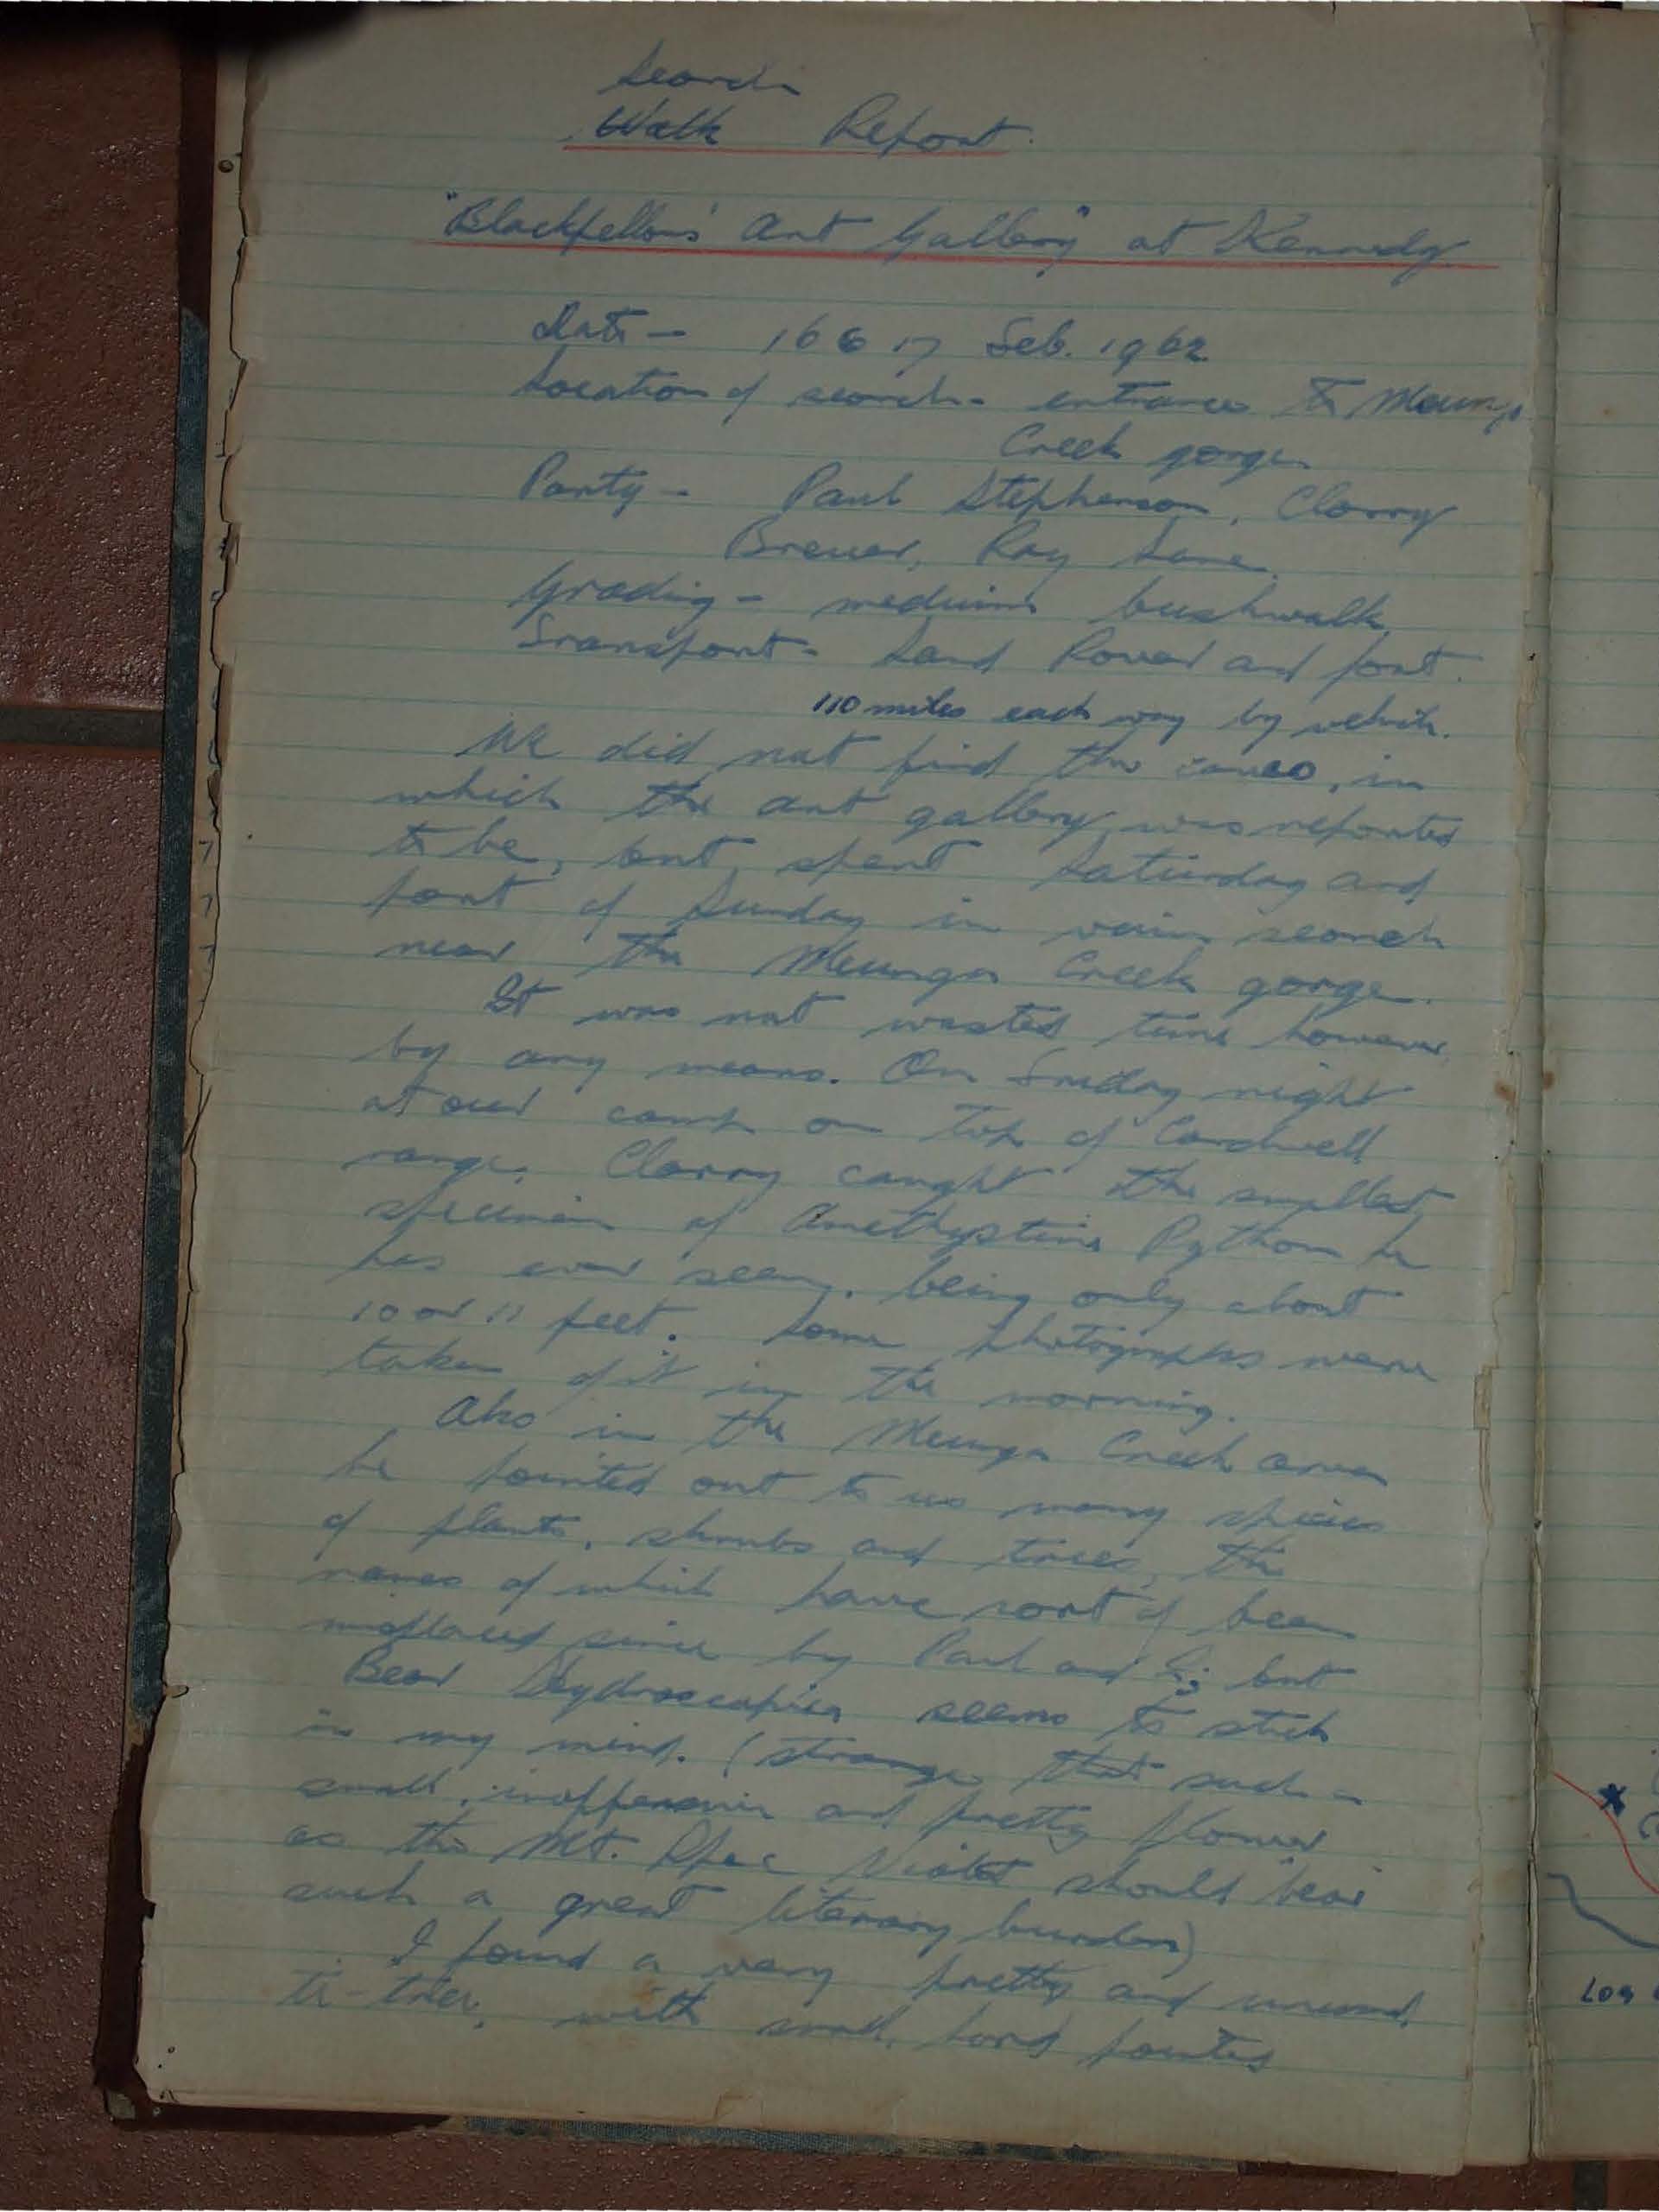 Search
Walk Report.
"Blackfellows' Art Gallery" at Kennedy
Date - 16 & 17 Feb. 1962
Location of search - entrance to Meunga
Creek gorge
Party - Paul Stephenson, Clarry
Brewer, Ray Lane.
Grading - medium bushwalk.
Transport - Land Rover and foot.
110 miles each way by vehicle.
We did not find the caves, in
which the art gallery was reported
to be, but spent Saturday and
part of Sunday in vain search
near the Meunga Creek gorge.
It was not wasted time however
by any means. On Friday night
at our camp on top of Cardwell
range, Clarry caught the smallest
specimen of Amethystine Python he
has ever seen, being only about
10 or 11 feet. Some photographs were
taken of it in the morning.
Also in the Meunga Creek area
he pointed out to us many species
of plants, shrubs and trees, the
names of which have sort of been
misplaced since by Paul and I; but
Boea Hygroscopica seems to stick
in my mind. (strange that such a
small, inoffensive and pretty flower
as the Mt. Spec Violet should bear
such a great literary burden)
I found a very pretty and unusual
ti-tree, with small, hard pointed
Log